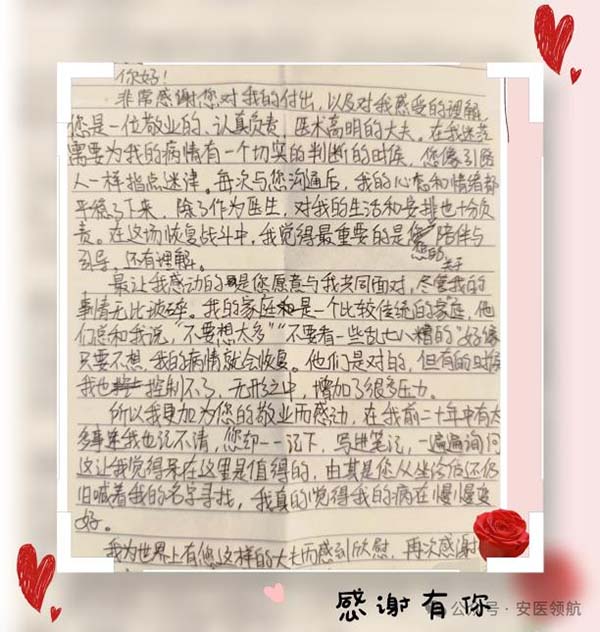 你好！
非常感谢您对我的付出，以及对我感受的理解，
您是一位敬业的、认真负责、医术高明的大夫。在我迷茫
需要为我的病情有一个切实的判断的时候，您像引路
人一样指点迷津。每次与您沟通后，我的心态和情绪都
平稳了下来，除了作为医生，对我的生活和安排也十分负
责。在这场恢复战斗中，我觉得最重要的是您的陪伴与
引导，还有理解。
最让我感动的是您愿意与我共同面对，尽管关于我的
事情无比琐碎。我的家庭是一个比较传统的家庭，他
们总和我说，“不要想太多”“不要看一些乱七八糟的”好像
只要不想，我的病情就会恢复。他们是对的，但有的时候
我也控制不了，无形之中，增加了很多压力。
所以我更加为您的敬业而感动，在我前二十年中有太
多事我也记不清，您却一一记下，写进笔记，一遍遍询问
这让我觉得呆在这里是值得的，由其是您从坐诊后还仍
旧喊着我的名字寻找，我真的觉得我的病在慢慢变
好。
我为世界上有您这样的大夫而感到欣慰，再次感谢
感谢有你
公众号·安医领航